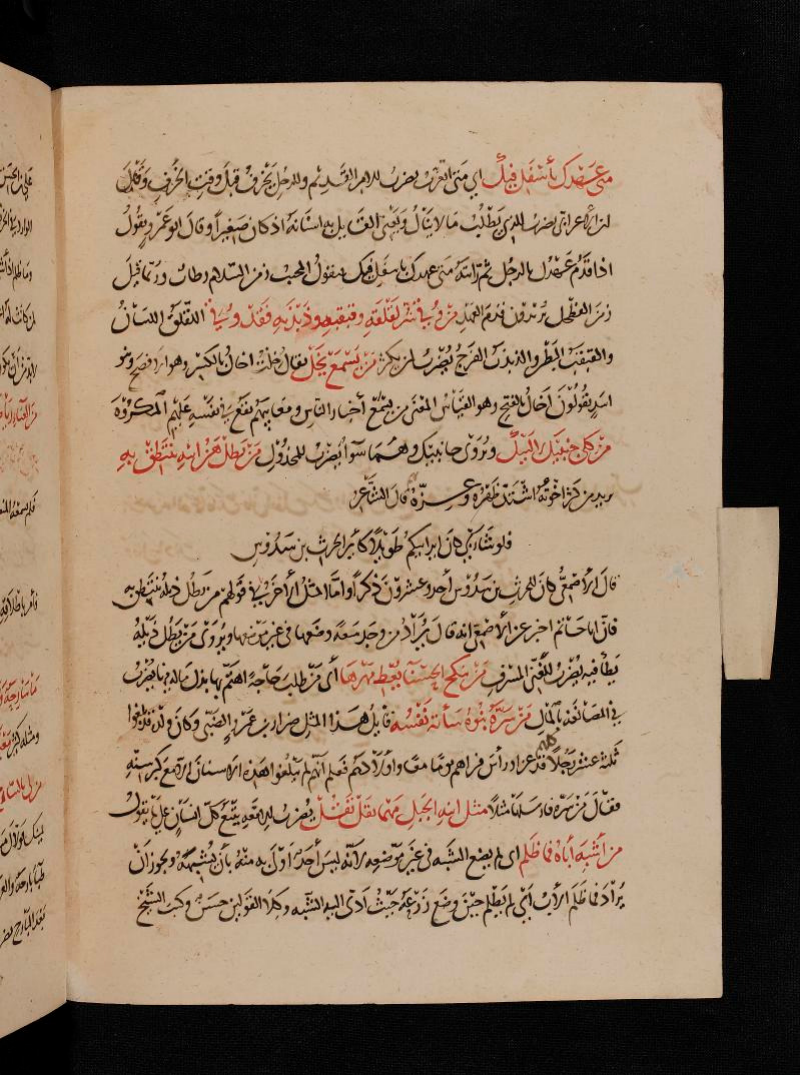 متى عهدك بأسفل فيك اي متى اثغرت يضرب للامر القديم وللرجل يخرف قبل وقت الخرف وقال
ابن الاعرابي يضرب للذي يطلب ما لا ينال ويعني القائل به اسنانه اذ كان صغيرا وقال ابو عمرو يقول
اذا قدم عهدك بالرجل ثم رأيته متى عهدك باسفل فيك فيقول المجيب زمن السلام رطاب وربما قيل
زمن الفطحل يريدون قدم العهد من وقي شر لقلقه وقبقبه وذبذبه فقد وقي اللقلق اللسان
والقبقب البطن والذبذب الفرج يضرب لمن يكثر من يسمع يخل يقال خلت اخال بالكسر وهو الافصح وبنو
اسد يقولون أخال بالفتح وهو القياس المعنى من يسمع أخبار الناس ومعايبهم يقع في نفسه عليهم المكروه
من كلى جنبيك لا لبيك ويروى جانبيك وهما سوآ يضرب للمخذول من يطل هن ابيه ينتطق به
يريد من كثر اخوته اشتد ظفره وعزه قال الشاعر
فلو شاء ربي كان اير ابيكم طويلا كأير الحرث بن سدوس
قال الاصمعي كان للحرث بن سدوس احد وعشرون ذكرا واما المثل الاخر في قولهم من يطل ذيله ينتطق به
فان ابا حاتم اخبر عن الاصمعي انه قال يراد من وجد سعة وضعها في غير موضعها ويروى من يطل ذيله
يطأ فيه يضرب للغني المسرف من ينكح الحسناء يعط مهرها أي من طلب حاجة اهتم بها بذل ماله فيها يضرب
في المصانعة بالمال من سره بنوه ساءته نفسه قايل هذا المثل ضرار بن عمرو الضبي وكان ولده قد بلغوا
ثلثة عشر رجلا كلهم قد غزا ورأس فراهم يوما معا واولادهم فعلم أنهم لم يبلغوا هذه الاسنان الا مع كبر سنه
فقال من سره فارسلها مثلا مثل ابنة الجبل مهما يقل تقل يضرب للامعه يتبع كل انسان على ما يقول
من أشبه أباه فما ظلم اي لم يضع الشبه في غير موضعه لانه ليس أحد أولى به منه بأن يشبهه ويجوز أن
يراد فما ظلم الاب أي لم يظلم حين وضع زرعه حيث ادى اليه الشبه وكلا القولين حسن وكتب الشيخ